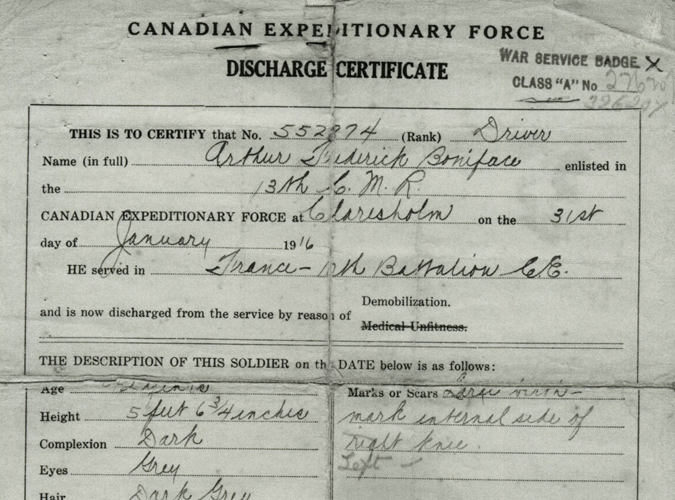 CANADIAN EXPEDITIONARY FORCE
WAR SERVICE BADGE X
DISCHARGE CERTIFICATE
CLASS "A" No
THIS IS TO CERTIFY that No. 552874 (Rank) Driver
Name (in full) Arthur Frederick Boniface enlisted in
the 13th C. M. R.
CANADIAN EXPEDITIONARY FORCE at Claresholm on the 31st
day of January 1916
HE served in France - Battalion C.E.
Demobilization.
and is now discharged from the service by reason of
Medical Unfitness.
THE DESCRIPTION OF THIS SOLDIER on the DATE below is as follows:
Age Marks or Scars
Height 5 feet 6 3/4 inches mark internal side of
Complexion Dark right knee.
Eyes Grey
Hair Dark Grey